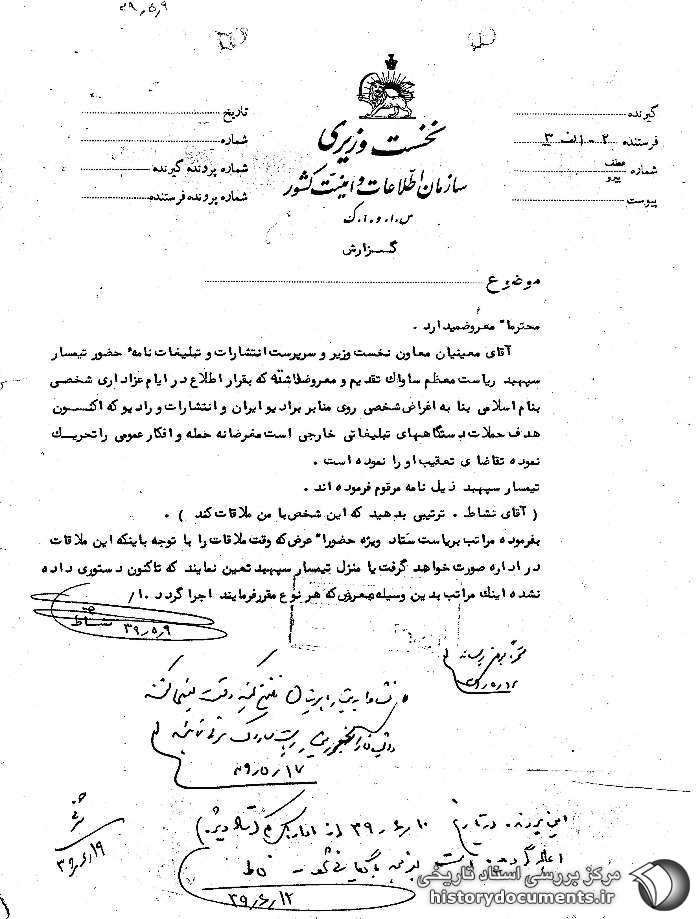 ۳۹٫۵٫۹
نخست وزیری
سازمان اطلاعات و امنیت کشور
س.ا.و.ا.ک
گزارش
گیرنده
فرستنده ۲-الف ۳
شماره عطف پیرو
پیوست
تاریخ
شماره
شماره پرونده گیرنده
شماره پرونده فرستنده
موضوع
محترما" معروضمیدارد .
آقای معینیان معاون نخست وزیر و سرپرست انتشارات و تبلیغات نامهٔ حضور تیمسار
سپهبد ریاست معظم ساواك تقدیم و معروضداشته که بقرار اطلاع در ایام عزاداری شخصی
بنام اسلامی بنا به اغراض شخصی روی منابر برادیو ایران و انتشارات و رادیو که اکنسون
هدف حملات دستگاههای تبلیغاتی خارجی است مغرضانه حمله و افکار عمومی را تحریك
نموده تقاضای تعقیب او را نموده است .
تیمسار سپهبد ذیل نامه مرقوم فرموده اند .
( آقای نشاط . ترتیبی بدهید که این شخص با من ملاقات کند ) .
بفرموده مراتب بریاست ستاد ویژه حضورا" عرض که وقت ملاقات را با توجه باینکه این ملاقات
در اداره صورت خواهد گرفت یا منزل تیمسار سپهبد تعیین نمایند که تاکنون دستوری داده
نشده اینك مراتب بدین وسیله بعرض که هر نوع مقرر فرمایند اجرا گردد ۱۰/
نشاط ۳۹٫۵٫۹
۳۹٫۵٫۱۷
این پرونده در تاریخ ۳۹٫۶٫۱۰ از اداره یکم (ستاد ویژه)
۳۹٫۶٫۱۲
۳۹٫۶٫۱۹
مرکز بررسی اسناد تاریخی
historydocuments.ir